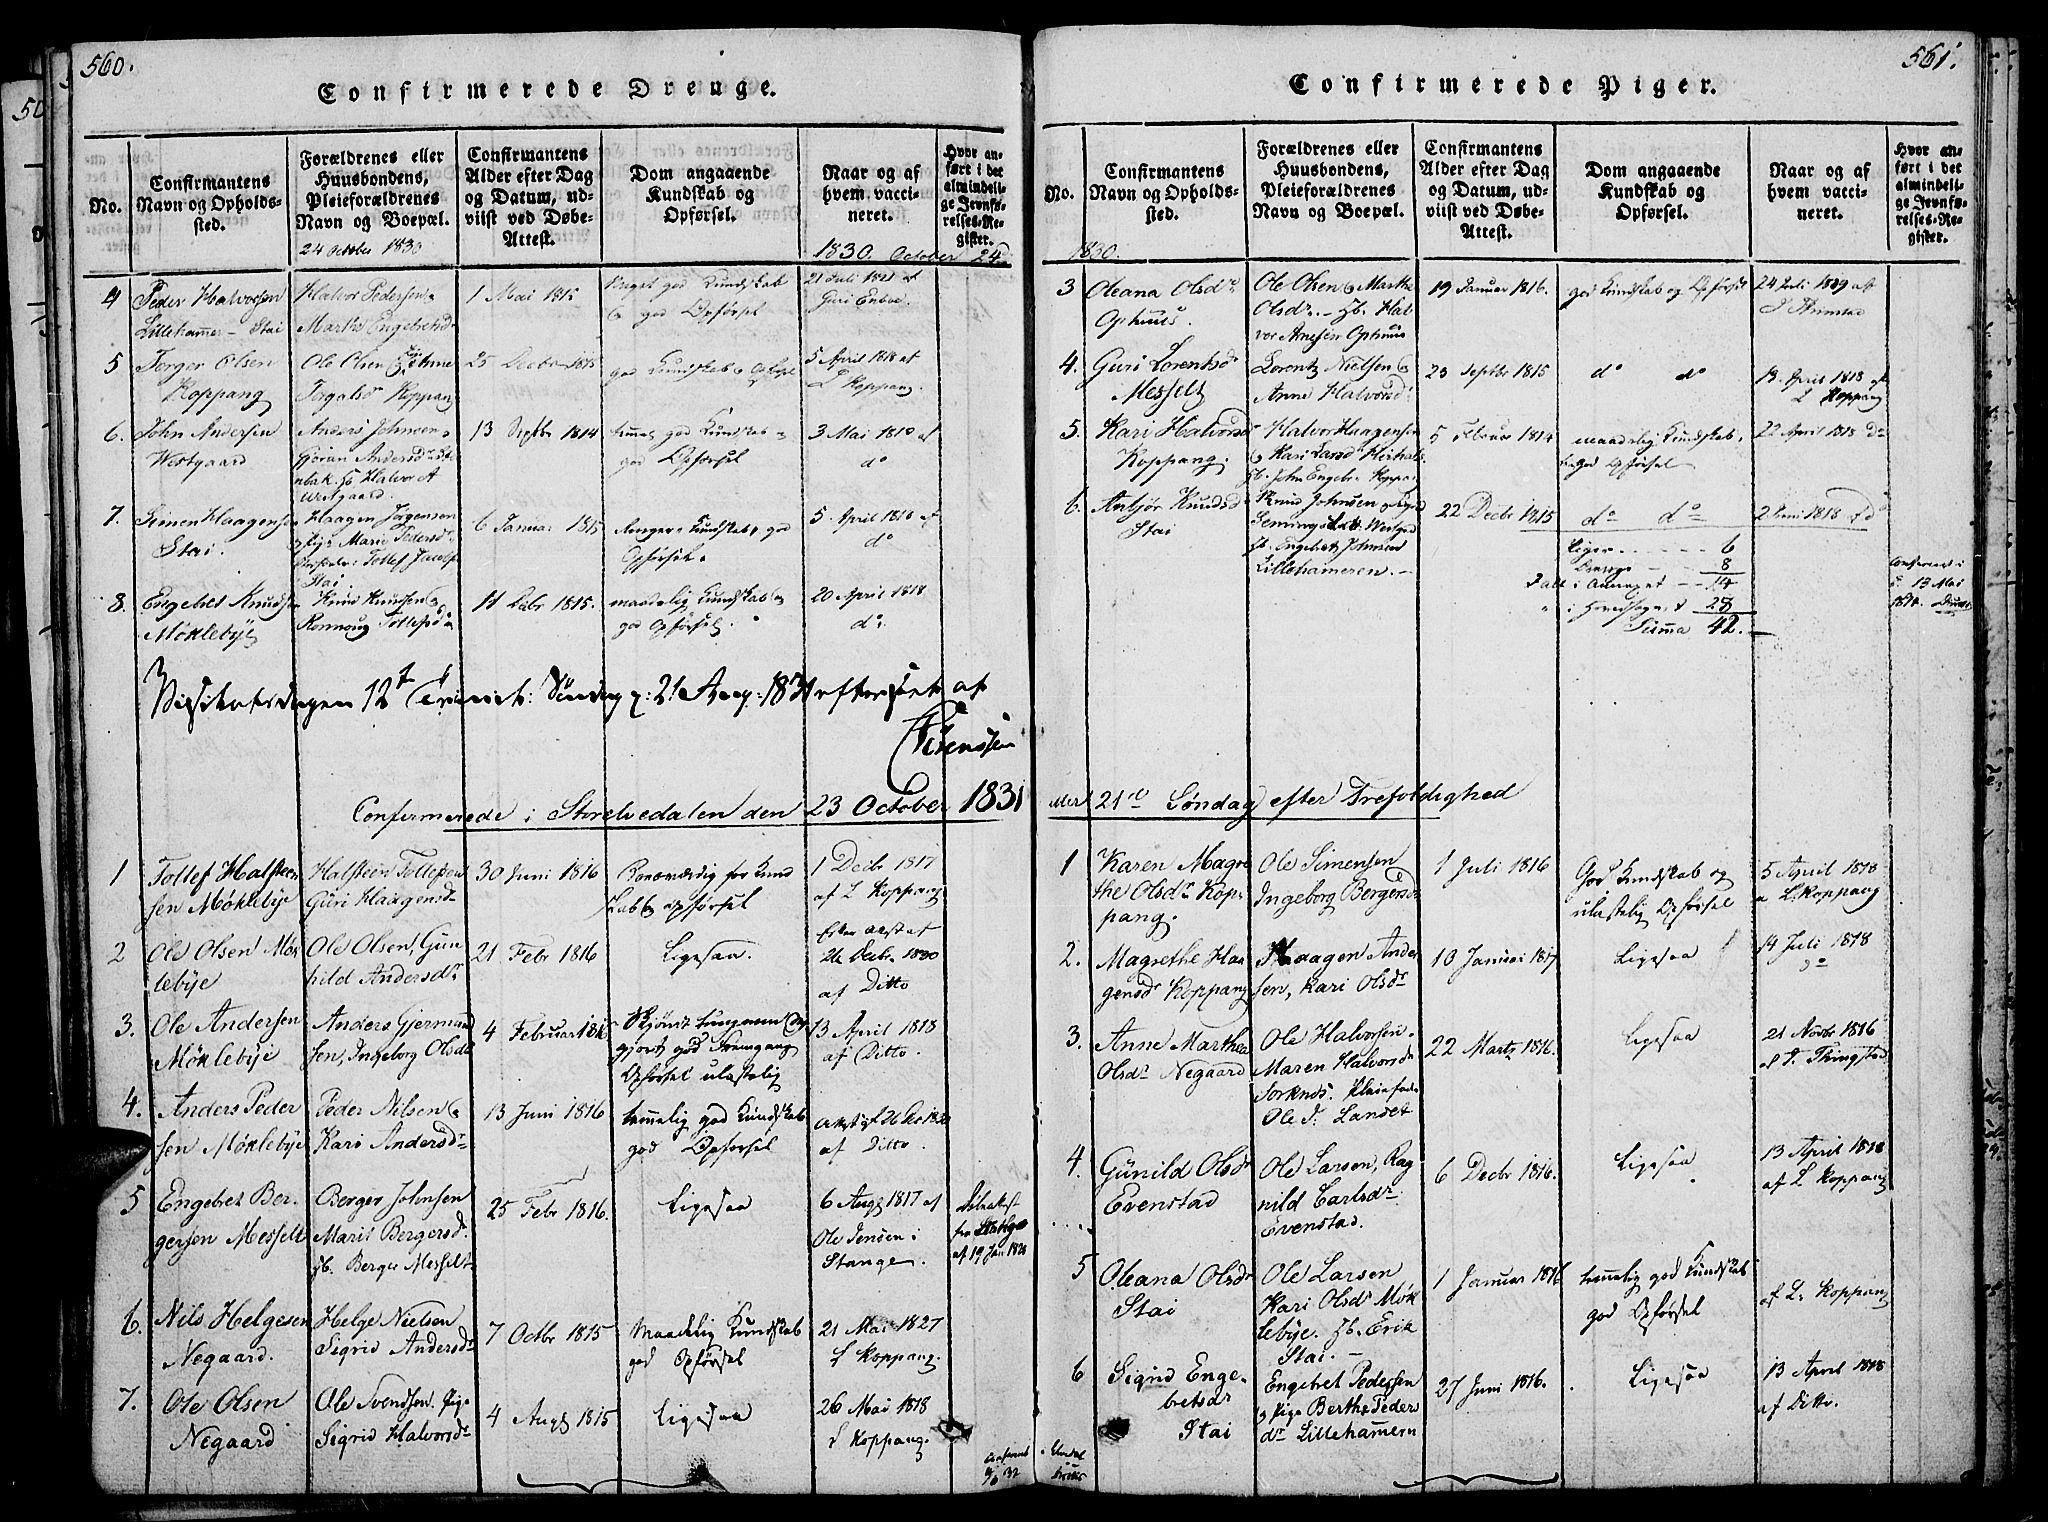 560.
Confirmerede Drenge.
No.
Confirmantens
Navn og Opholds-
sted.
Forældrenes eller
Huusbondens,
Pleieforældrenes
Navn og Boepæl.
24 October 1830
Confirmantens
Alder efter Dag
og Datum, ud-
viist ved Døbe-
Attest.
Dom angaaende
Kundskab og
Opførsel.
Naar og af
hvem vacci-
neret.
1830. October 24
Hvor an-
ført i det
almindeli-
ge Jevnfø-
relses-Re-
gister.
4
Peder Halvorsen
Lillehamer - Stai
Halvor Pedersen
Marthe Engebretsd.
1 Mai 1815
Meget god Kundskab
god Opførsel
21 Juli 1821 af
Guri
5
Torger Olsen
Koppang
Ole Olsen
Koppang
25 Decbr 1815
god Kundskab og Opførsel
5 April 1818 af
L Koppang
6.
John Andersen
Westgaard
Anders Johnsen
Gjøran Andersdr
Halvor A
Westgaard.
13 Septbr 1814
god Kundskab
god Opførsel
3 Mai 1810 af
do
7.
Simen Haagensen
Stai.
Haagen Jørgensen
Pige Marie Pedersdr
Tollef Jacobs
Stai
6 Januar 1815
Kundskab, god
Opførsel.
5 April 1818 af
do
8.
Engebret Knudsen
Møklebye
Knud Knudsen
Ronnoug Tollefsd.
11 Debr 1815.
maadelig Kundskab
god Opførsel.
20 April 1818
do.
Visitatsdagen 12te Trinit: Søndag d: 21 Aug: 1831 efterseet af
Confirmerede i Storelvedalen den 23 October 1831
1
Tollef Halsteen
sen Møklebye
Halsteen Tollefsen
Guri Haagensd.
30 Juni 1816
Roesværdig for Kund
skab og Opførsel
1 Decbr 1817
af L Koppang
2
Ole Olsen Møk
lebye
Ole Olsen, Gun
hild Andersdr
21 Febr 1816
Ligesaa.
26 Decbr. 1820
af Ditto
3.
Ole Andersen
Møklebye
Anders Gjermund
sen, Ingeborg Olsd
4 Februar 1816
Skjønt tungnem
gjort god Fremgang
Opførsel ulastelig
13 April 1818
af Ditto.
4.
Anders Peder
sen Møklebye
Peder Nilsen
Kari Andersdr
13 Juni 1816
temmelig god Kundskab
god Opførsel
af Ditto.
5
Engebret Ber.
gersen Messelt
Berger Johnsen
Marit Bergersd.
Berger Messelt
25 Febr 1816.
Ligesaa
6 Augt 1817 af
Ole Jensen i
Stange.
6.
Nils Helgesen
Negaard.
Helge Nielsen
Sigrid Andersdr
7 Octbr 1815
Maadelig Kundskab
god Opførsel
21 Mai 1827
L Koppang.
7.
Ole Olsen
Negaard
Ole Svendsen, Pige
Sigrid Halvorsdr
4 Augt 1815
Ligesaa
26 Mai 1818
L Koppang.
561.
Confirmerede Piger.
No.
Confirmantens
Navn og Opholds-
sted.
Forældrenes eller
Huusbondens,
Pleieforældrenes
Navn og Boepæl.
Confirmantens
Alder efter Dag
og Datum, ud-
viist ved Døbe-
Attest.
Dom angaaende
Kundskab og
Opførsel.
Naar og af
hvem vacci-
neret.
Hvor an-
ført i det
almindeli-
ge Jevnfø-
relses-Re-
gister.
1830.
3
Oleana Olsdr
Ophuus.
Ole Olsen Marthe
Olsdr. Hal
vor Arnesen Ophuus
19 Januar 1816.
god Kundskab og Opførsel
24 Juli 1819 af
4.
Guri Lorentsdr
Messelt
Lorentz Nielsen
Anne Halvorsdr
23 Septbr 1815
do do
13. April 1818 af
L Koppang
5.
Kari Halvorsd
Koppang.
Halvor Haagensen
Kari Larsd
John Engebr. Koppang
5 Februar 1814
maadelig Kundskab,
god Opførsel
22 April 1818 do
6.
Anbjør Knudsd
Stai
Knud Johnsen
Engebret Johnsen
Lillehameren.
22 Decbr 1815
do do
2 Juni 1818
Piger 6
Drenge 8
i Annexet 14
i Hovedsognet 28
Summa 42.
13 Mai
den 21de Søndag efter Trefoldighed
1
Karen Magre
the Olsdr Kop
pang.
Ole Simensen
Ingeborg Bergersdr
1 Juli 1816
God Kundskab og
ulastelig Opførsel
5 April 1818
L. Koppang
2.
Magrethe Haa
gensdr Koppang
Haagen Ander
sen, Kari Olsdr
10 Januar 1817
Ligesaa
14 Juli 1818
do
3.
Anne Marthea
Olsdr Negaard
Ole Halvorsen
Maren Halvorsdr
Sorknes. Pleiefad.
Ole Landet
22 Marts 1816.
Ligesaa
21 Novbr 1816
4.
Gunild Olsdr
Evenstad
Ole Larsen, Rag
nild Carlsdr
Evenstad.
6 Decbr 1816.
Ligesaa
13 April 1818
af L Koppang
5
Oleana Olsdr
Stai
Ole Larsen
Kari Olsdr Møk
lebye. Erik
Stai.
1 Januar 1816
temmelig god Kundskab
god Opførsel
af L. Koppang
6
Sigrid Enge-
bretsdr
Stai
Engebret Pedersen
Pige Berthe Peders
dr Lillehammern
27 Juni 1816.
Ligesaa
13 April 1818
af Ditto.